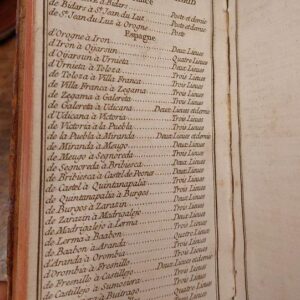 de Bidars à St. Jean du Luz Poste et demie
de St. Jean du Luz à Orogne Poste
Espagne
d'Orogne à Iron Deux Lieues
d'Iron à Ojarsuin Quatre Lieues
d'Ojarsuin à Urneta Deux Lieues
d'Urneta à Toloza Trois Lieues
de Toloza à Villa Franca Trois Lieues
de Villa Franca à Zegama Trois Lieues
de Zegama à Galereta Trois Lieues
de Galereta à Udicana Deux Lieues et demie
d'Udicana à Victoria Trois Lieues
de Victoria à la Puebla Trois Lieues
de la Puebla à Miranda Deux Lieues et demie
de Miranda à Meugo Deux Lieues
de Meugo à Segnoreda Trois Lieues
de Segnoreda à Bribusca Trois Lieues
de Bribusca à Castel de Peones Deux Lieues
de Castel à Quintanapalia Trois Lieues
de Quintanapalia à Burgos Trois Lieues
de Burgos à Zarazin Deux Lieues
de Zarazin à Madrigalejo Trois Lieues
de Madrigalejo à Lerma Deux Lieues
de Lerma à Baabon Quatre Lieues
de Baabon à Aranda Trois Lieues
d'Aranda à Orombia Deux Lieues et demie
d'Orombia à Fresnillo
de Fresnillo à Castillejo Trois Lieues
de Castillejo à Somosierra Trois Lieues
à Buitrago